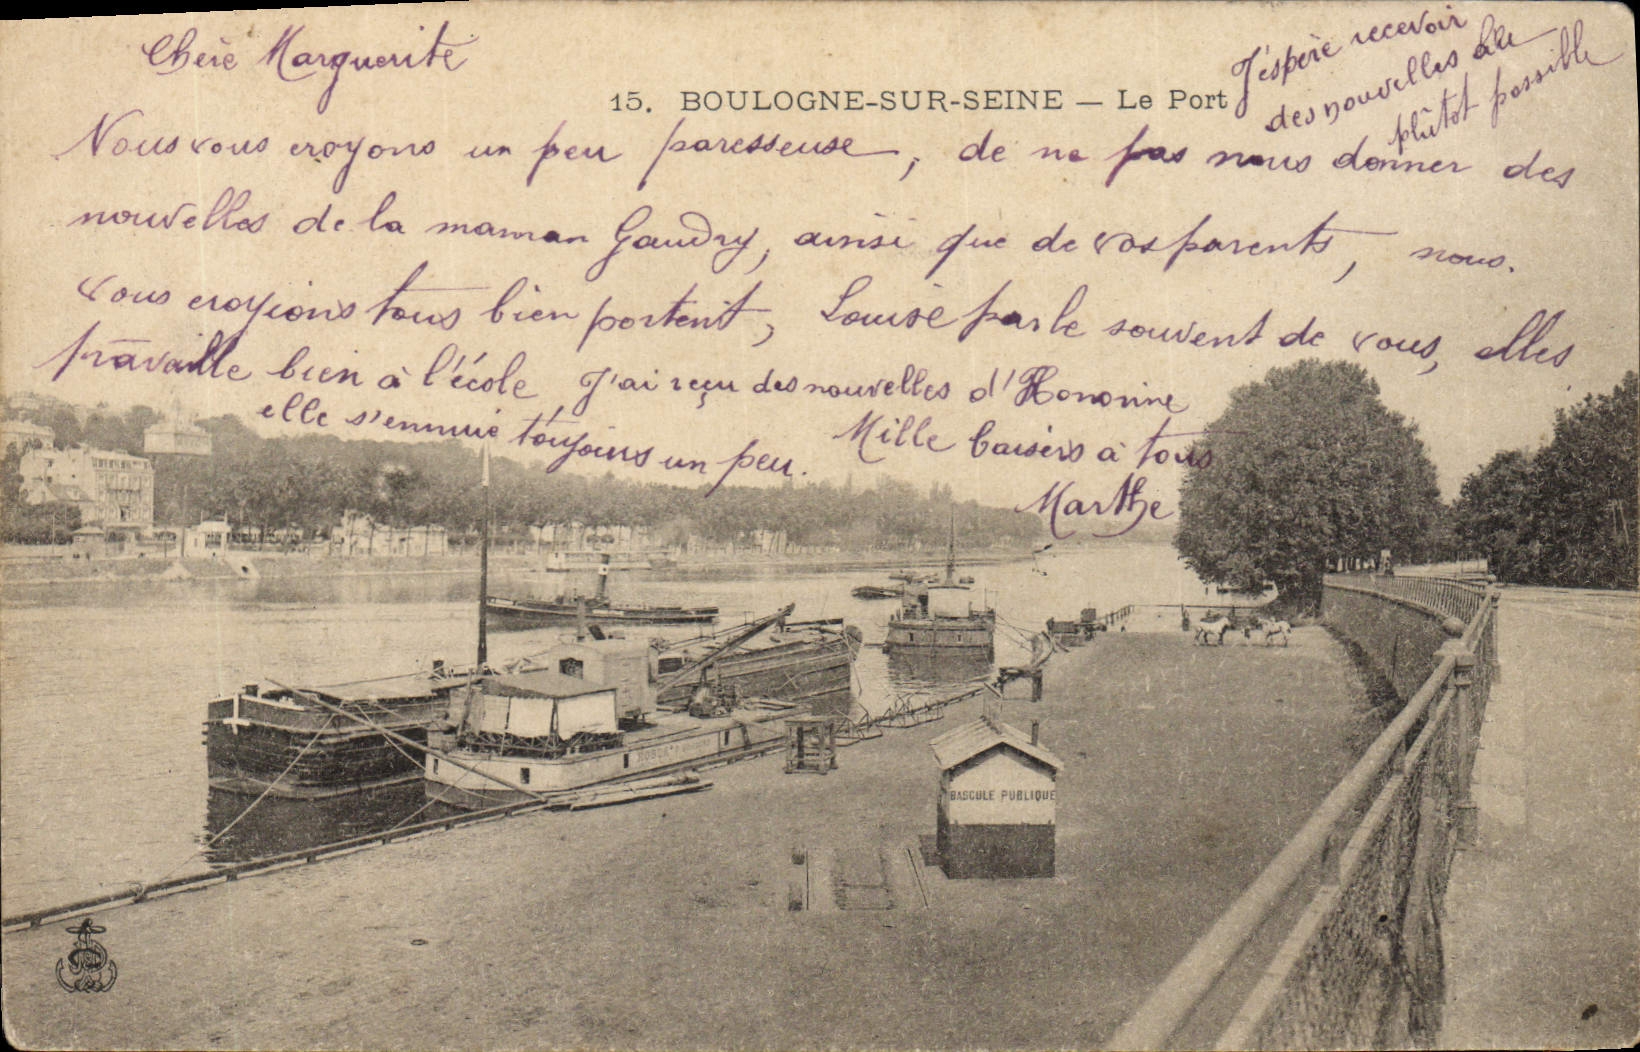 Chère Marguerite
15. BOULOGNE-SUR-SEINE — Le Port
Nous vous croyons un peu paresseuse, de ne pas nous donner des
nouvelles de la maman Gaudry, ainsi que de vos parents, nous.
vous croyions tous bien portent, Louise parle souvent de vous, elles
travaille bien à l'école J'ai reçu des nouvelles d'Honorine
elle s'ennuie toujours un peu.
Mille baisers à tous
Marthe
J'éspère recevoir
des nouvelles le
plûtot possible
BASCULE PUBLIQUE